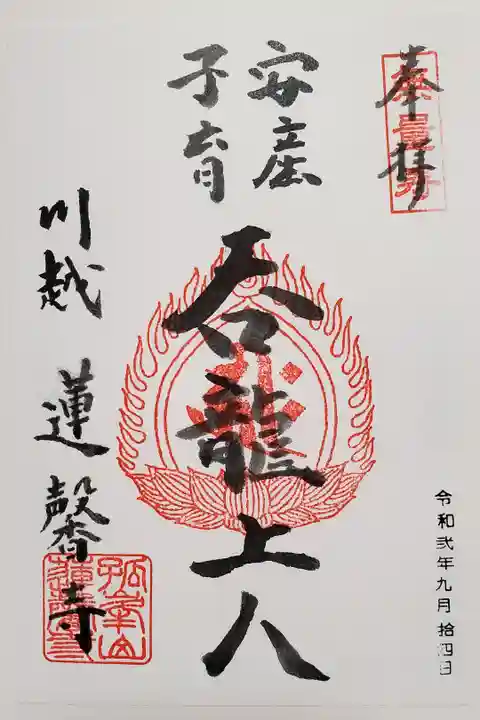 奉拝
安産
子育
呑龍上人
川越 蓮馨寺
孤峯山
蓮馨寺
令和弐年九月拾四日